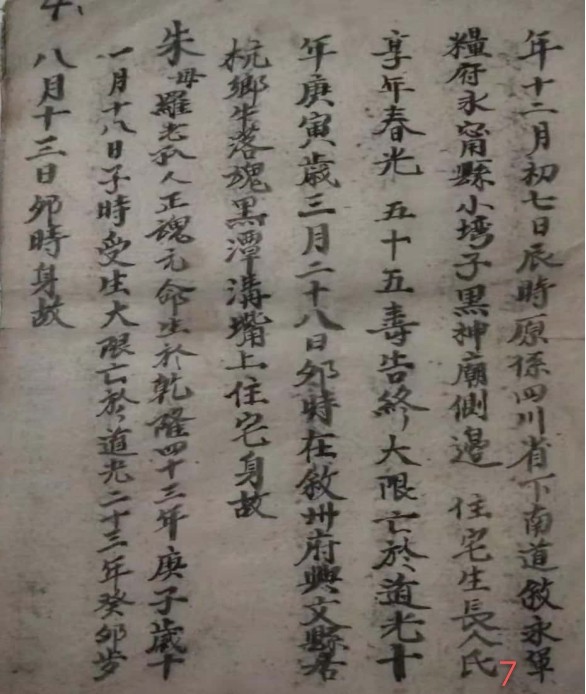 年十二月初七日辰時原係四川省下南道敘永軍
糧府永甯縣小塆子黑神廟側邊 住宅生長人氏
享年春光 五十五壽告終大限亡於道光十
年庚寅歲三月二十八日卯時在敘州府興文縣君
杭鄉牛落魂黑潭溝嘴上住宅身故
朱母羅老孺人正魂元命生於乾隆四十三年庚子歲十
一月十八日子時受生大限亡於道光二十三年癸卯岁
八月十三日卯時身故
4、
7